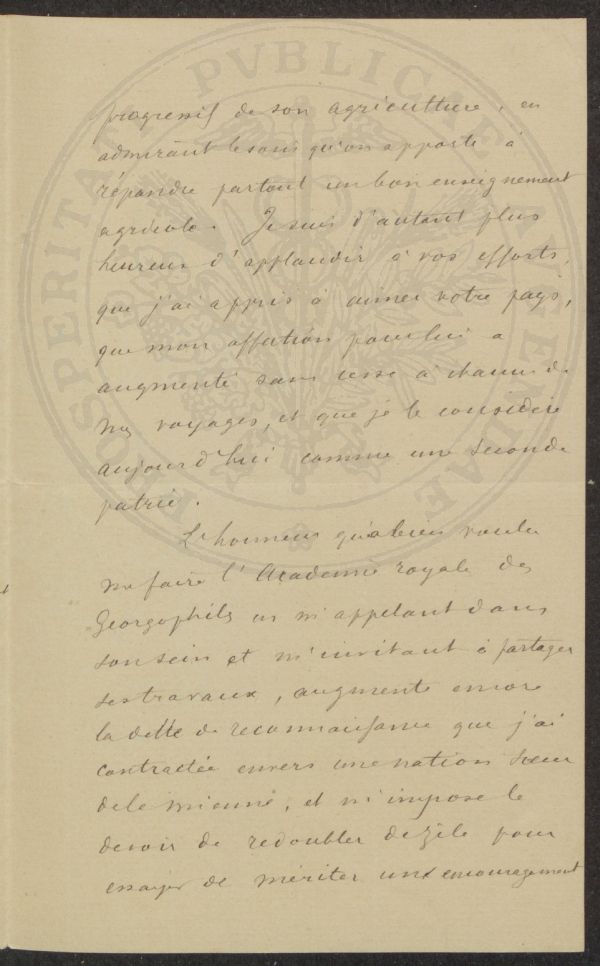 progressif de son agriculture, en
admirant le soin qu'on apporte à
répandre partout un bon enseignement
agricole. Je suis d'autant plus
heureux d'applaudir à vos efforts,
que j'ai appris à aimer votre pays,
que mon affection pour lui a
augmenté sans cesse à chacun de
mes voyages, et que je le considère
aujourd'hui comme une seconde
patrie.
L'honneur qu'a bien voulu
me faire l'Académie royale des
Georgophiles en m'appelant dans
son sein et m'invitant à partager
ses travaux, augmente encore
la dette de reconnaissance que j'ai
contractée envers une nation sœur
de la mienne, et m'impose le
devoir de redoubler de zèle pour
essayer de mériter un encouragement
PROSPERITATI PVBLICAE AVGENDAE